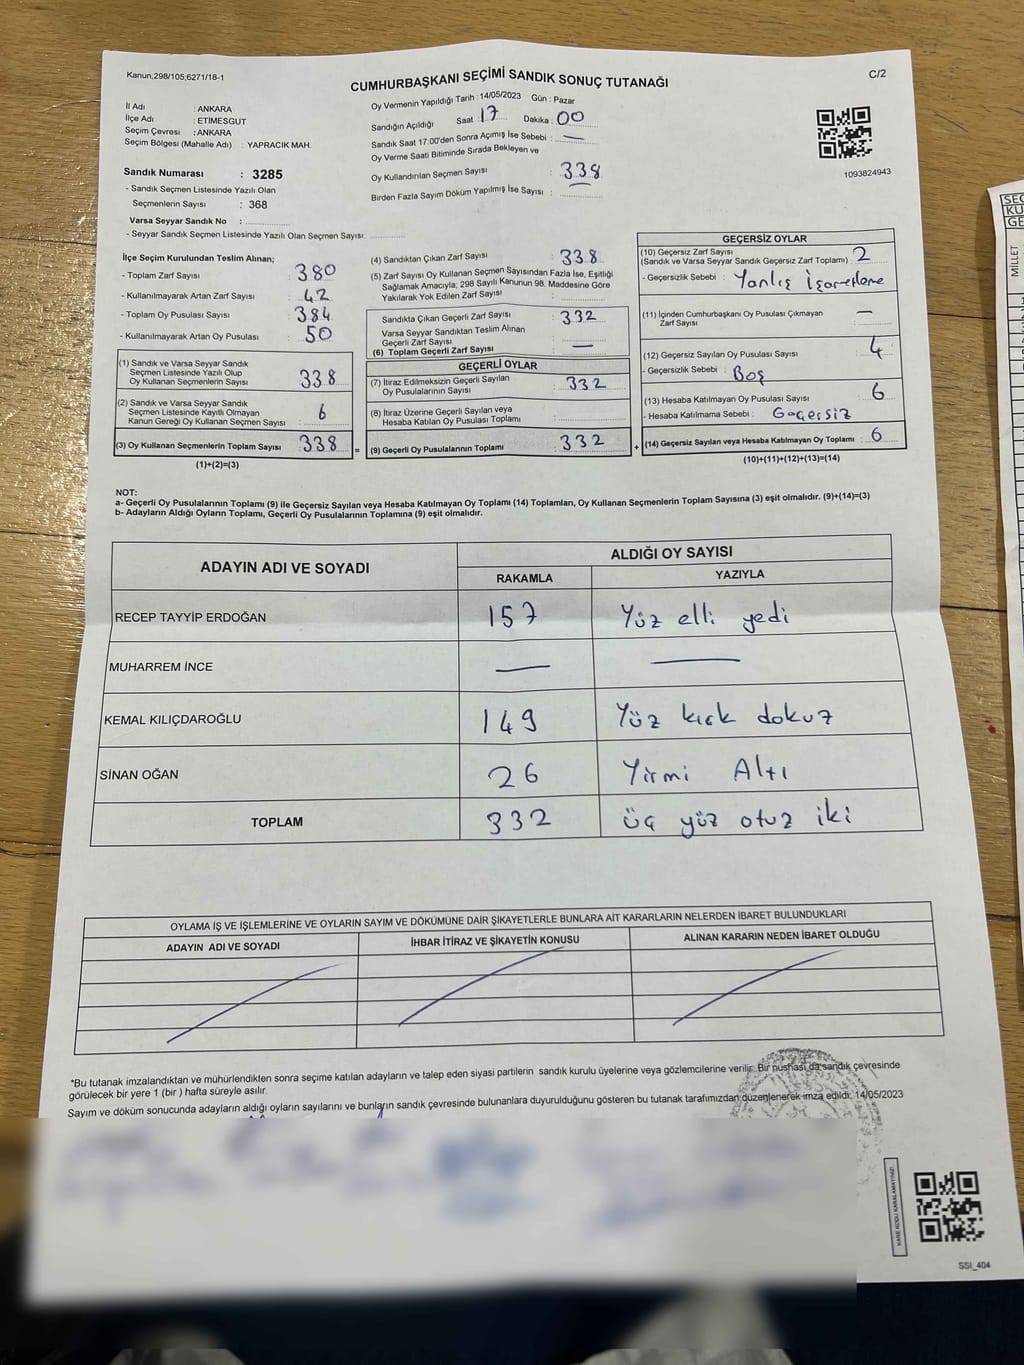 Kanun;298/105;6271/18-1
CUMHURBAŞKANI SEÇİMİ SANDIK SONUÇ TUTANAĞI
C/2
İl Adı : ANKARA
İlçe Adı : ETİMESGUT
Seçim Çevresi : ANKARA
Seçim Bölgesi (Mahalle Adı) : YAPRACIK MAH.
Sandık Numarası : 3285
- Sandık Seçmen Listesinde Yazılı Olan
Seçmenlerin Sayısı : 368
Varsa Seyyar Sandık No :
- Seyyar Sandık Seçmen Listesinde Yazılı Olan Seçmen Sayısı:
Oy Vermenin Yapıldığı Tarih : 14/05/2023 Gün : Pazar
Sandığın Açıldığı Saat : 17 Dakika : 00
Sandık Saat 17:00'den Sonra Açımış İse Sebebi : —
Oy Verme Saati Bitiminde Sırada Bekleyen ve
Oy Kullandırılan Seçmen Sayısı : 338
Birden Fazla Sayım Döküm Yapılmış İse Sayısı :
1093824943
İlçe Seçim Kurulundan Teslim Alınan;
- Toplam Zarf Sayısı : 380
- Kullanılmayarak Artan Zarf Sayısı : 42
- Toplam Oy Pusulası Sayısı : 384
- Kullanılmayarak Artan Oy Pusulası : 50
(1) Sandık ve Varsa Seyyar Sandık
Seçmen Listesinde Yazılı Olup
Oy Kullanan Seçmenlerin Sayısı : 338
(2) Sandık ve Varsa Seyyar Sandık
Seçmen Listesinde Kayıtlı Olmayan
Kanun Gereği Oy Kullanan Seçmen Sayısı : 6
(3) Oy Kullanan Seçmenlerin Toplam Sayısı : 338 =
(1)+(2)=(3)
(4) Sandıktan Çıkan Zarf Sayısı : 338
(5) Zarf Sayısı Oy Kullanan Seçmen Sayısından Fazla İse, Eşitliği
Sağlamak Amacıyla; 298 Sayılı Kanunun 98. Maddesine Göre
Yakılarak Yok Edilen Zarf Sayısı :
Sandıkta Çıkan Geçerli Zarf Sayısı : 332
Varsa Seyyar Sandıktan Teslim Alınan
Geçerli Zarf Sayısı :
(6) Toplam Geçerli Zarf Sayısı : —
GEÇERLİ OYLAR
(7) İtiraz Edilmeksizin Geçerli Sayılan
Oy Pusulalarının Sayısı : 332
(8) İtiraz Üzerine Geçerli Sayılan veya
Hesaba Katılan Oy Pusulası Toplamı :
(9) Geçerli Oy Pusulalarının Toplamı : 332 +
GEÇERSİZ OYLAR
(10) Geçersiz Zarf Sayısı
(Sandık ve Varsa Seyyar Sandık Geçersiz Zarf Toplamı) : 2
- Geçersizlik Sebebi : Yanlış İşaretleme
(11) İçinden Cumhurbaşkanı Oy Pusulası Çıkmayan
Zarf Sayısı : —
(12) Geçersiz Sayılan Oy Pusulası Sayısı : 4
- Geçersizlik Sebebi : Boş
(13) Hesaba Katılmayan Oy Pusulası Sayısı : 6
- Hesaba Katılmama Sebebi : Geçersiz
(14) Geçersiz Sayılan veya Hesaba Katılmayan Oy Toplamı : 6
(10)+(11)+(12)+(13)=(14)
NOT:
a- Geçerli Oy Pusulalarının Toplamı (9) ile Geçersiz Sayılan veya Hesaba Katılmayan Oy Toplamı (14) Toplamları, Oy Kullanan Seçmenlerin Toplam Sayısına (3) eşit olmalıdır. (9)+(14)=(3)
b- Adayların Aldığı Oyların Toplamı, Geçerli Oy Pusulalarının Toplamına (9) eşit olmalıdır.
ADAYIN ADI VE SOYADI ALDIĞI OY SAYISI
RAKAMLA YAZIYLA
RECEP TAYYİP ERDOĞAN 157 Yüz elli yedi
MUHARREM İNCE — —
KEMAL KILIÇDAROĞLU 149 Yüz kırk dokuz
SİNAN OĞAN 26 Yirmi Altı
TOPLAM 332 üç yüz otuz iki
OYLAMA İŞ VE İŞLEMLERİNE VE OYLARIN SAYIM VE DÖKÜMÜNE DAİR ŞİKAYETLERLE BUNLARA AİT KARARLARIN NELERDEN İBARET BULUNDUKLARI
ADAYIN ADI VE SOYADI İHBAR İTİRAZ VE ŞİKAYETİN KONUSU ALINAN KARARIN NEDEN İBARET OLDUĞU
*Bu tutanak imzalandıktan ve mühürlendikten sonra seçime katılan adayların ve talep eden siyasi partilerin sandık kurulu üyelerine veya gözlemcilerine verilir. Bir nüshası da sandık çevresinde
görülecek bir yere 1 (bir ) hafta süreyle asılır.
Sayım ve döküm sonucunda adayların aldığı oyların sayılarını ve bunların sandık çevresinde bulunanlara duyurulduğunu gösteren bu tutanak tarafımızdan düzenlenerek imza edildi. 14/05/2023
KARE KODU KARALAMAYINIZ!
SSI_404
MİLLET